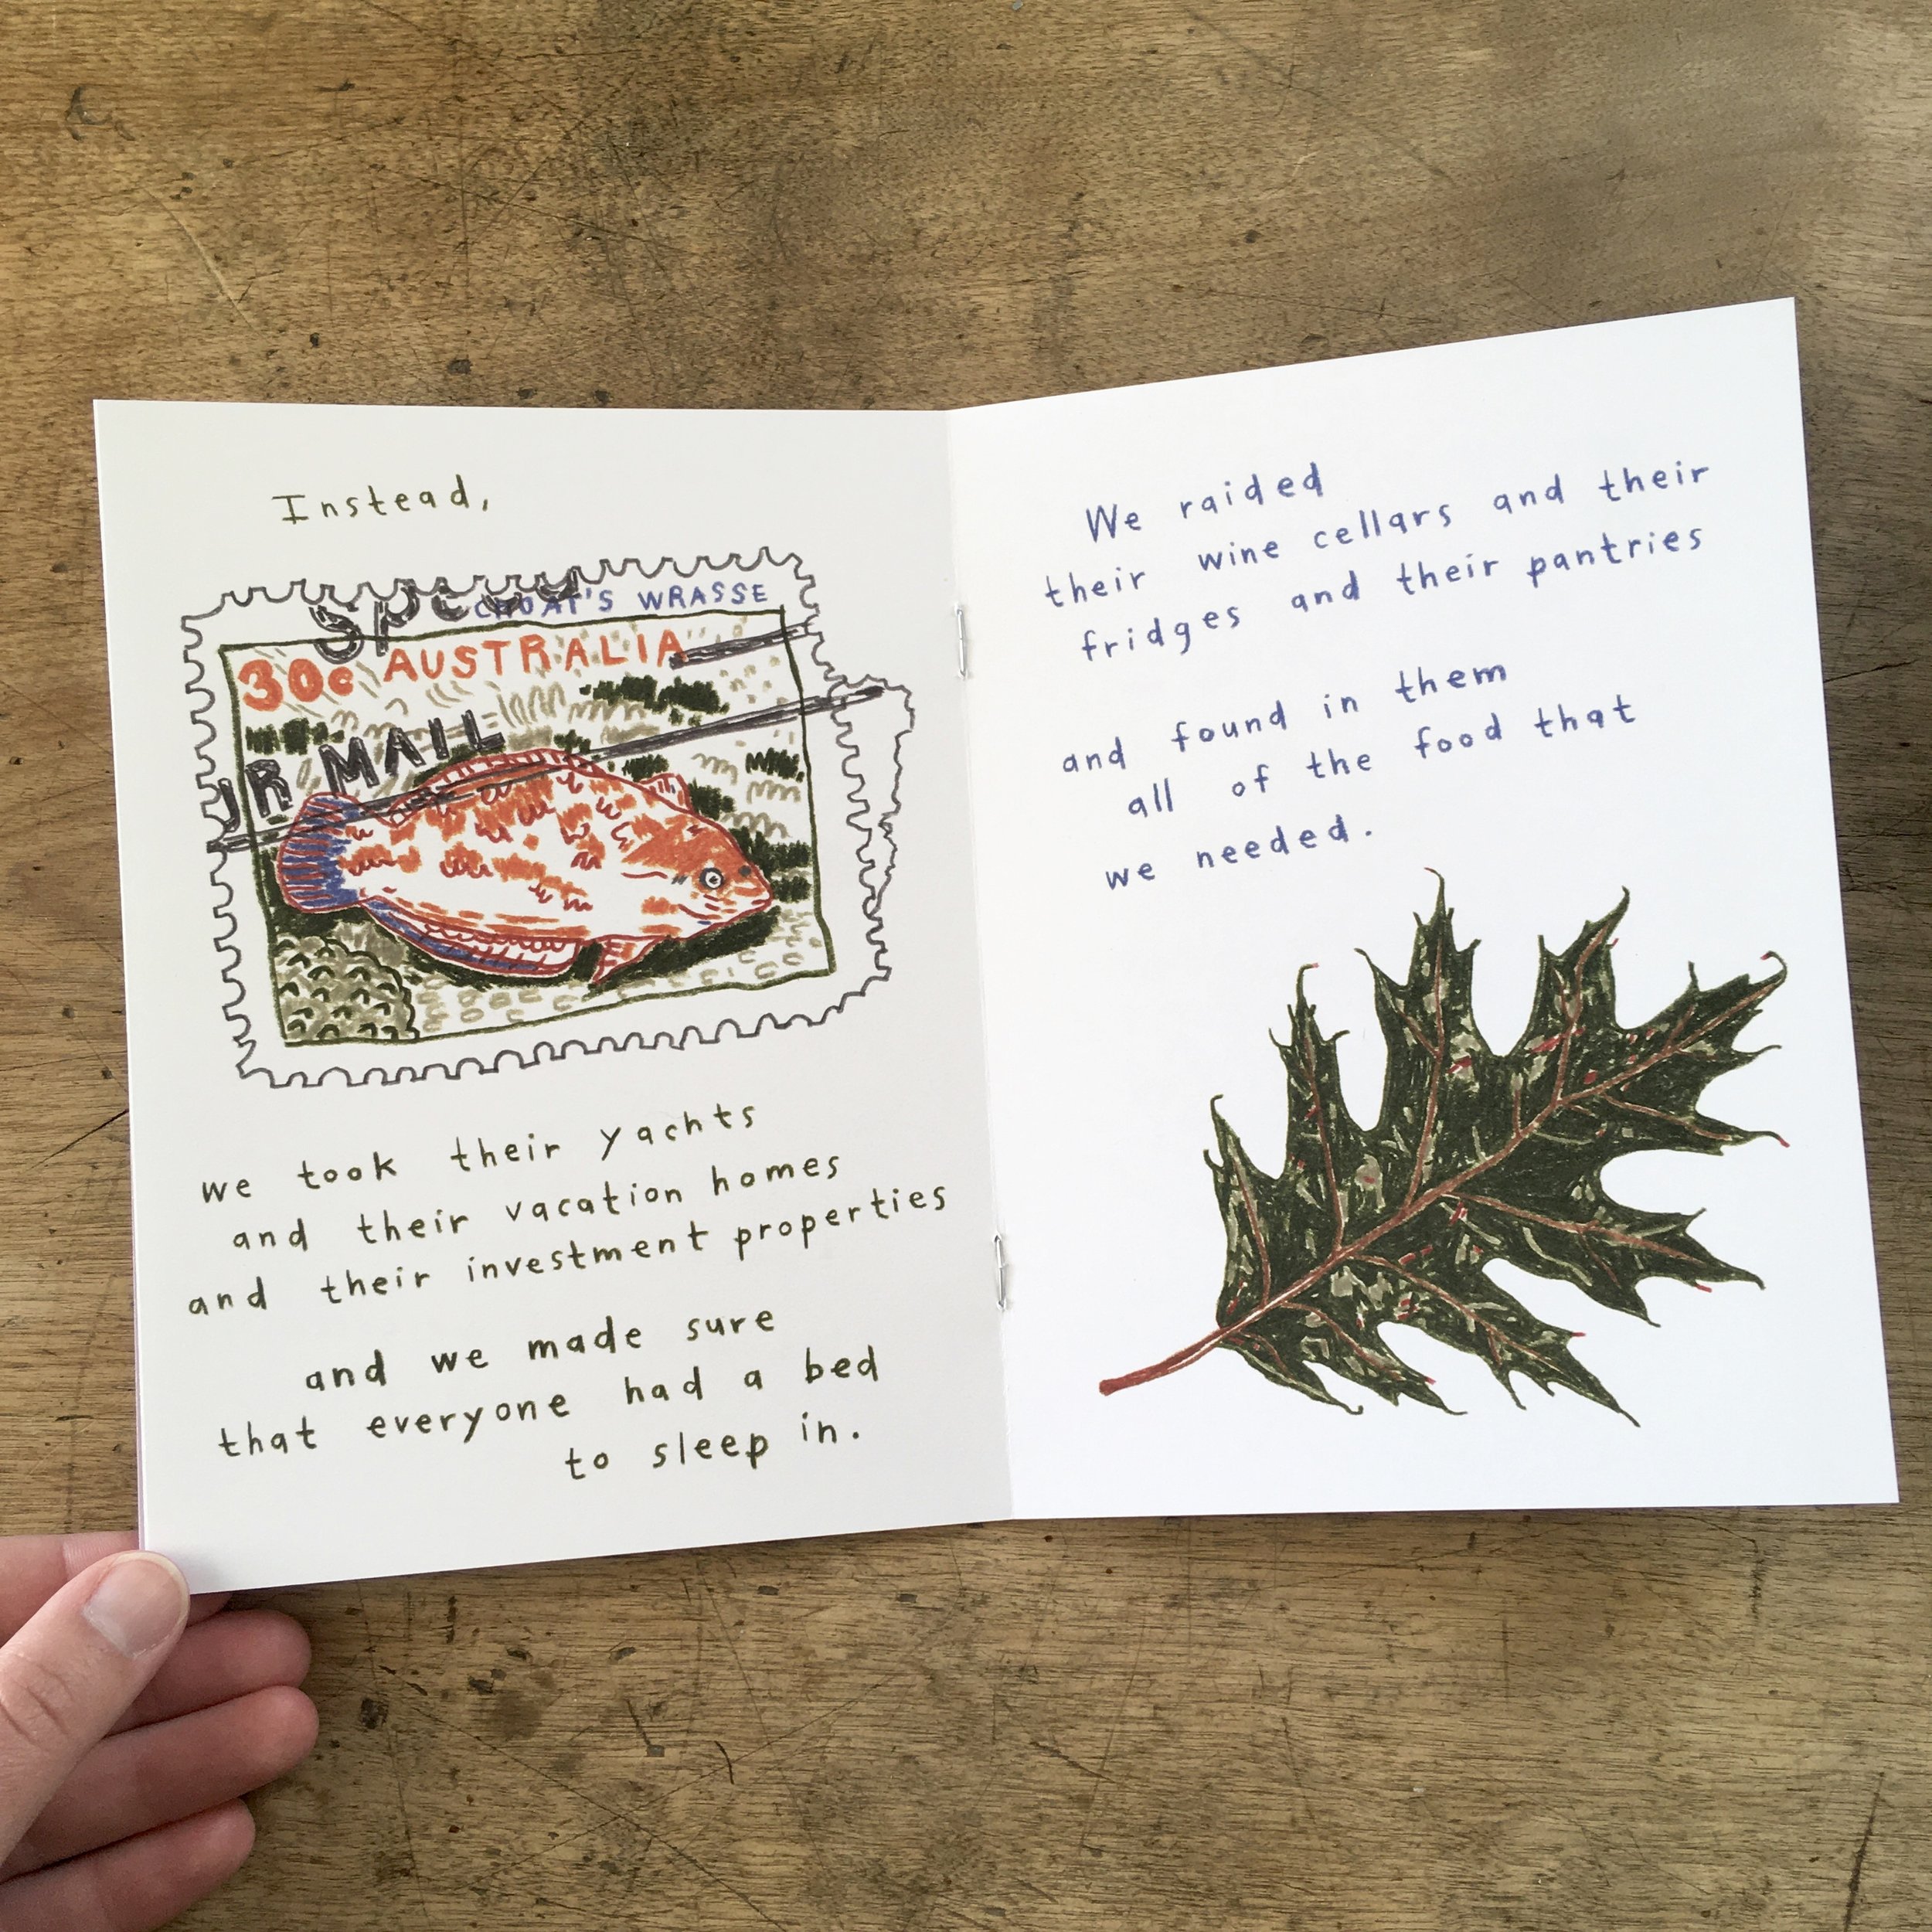 Instead,
CHOAT'S WRASSE
30c AUSTRALIA
MAIL
we took their yachts
and their vacation homes
and their investment properties
and we made sure
that everyone had a bed
to sleep in.
We raided
their wine cellars and their
fridges and their pantries
and found in them
all of the food that
we needed.